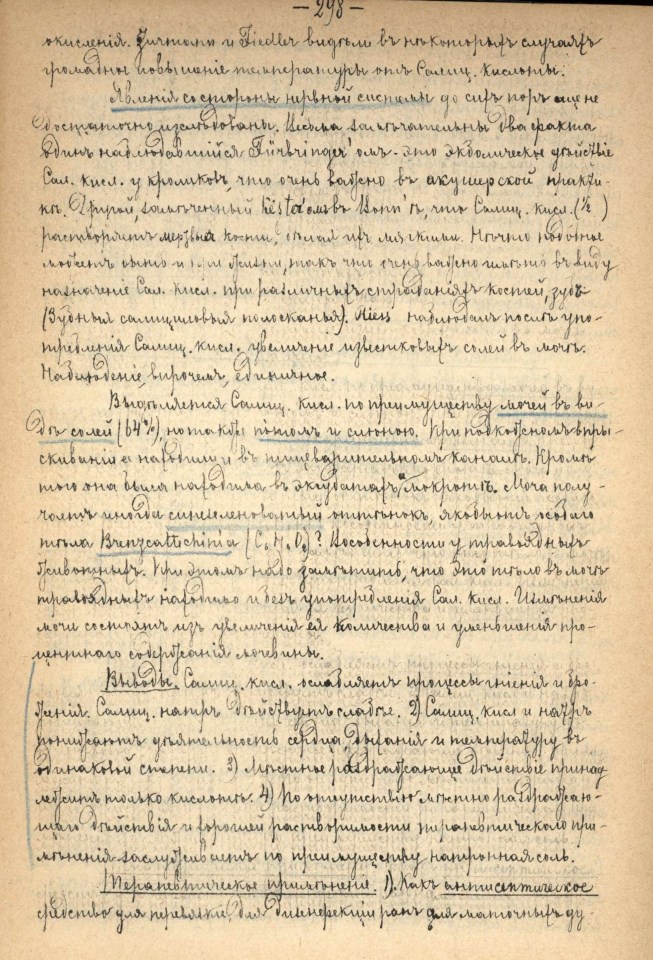 — 298 —
окисленія. и Fiedler видѣли въ нѣкоторыхъ случаяхъ
громадное повышеніе температуры отъ Салиц. кислоты.
Явленія со стороны нервной системы до сихъ поръ еще не
достаточно изслѣдованы. Весьма замѣчательны два факта
одинъ наблюдавшійся Fürbringer'омъ - это экболическое дѣйствіе
Сал. кисл. у кроликовъ, что очень важно въ акушерской практи-
кѣ. Другой, замѣченный омъ въ Bonn'ѣ, что Салиц. кисл. (½ )
растворяетъ мертвыя кости, дѣлая ихъ мягкими. Нѣчто подобное
можетъ быть и при жизни, такъ что очень важно имѣть въ виду
назначеніе Сал. кисл. при различныхъ страданіяхъ костей, зубъ
(Зубныя салициловыя полосканья). наблюдалъ послѣ упо-
требленія Салиц. кисл. увеличеніе известковыхъ солей въ мочѣ.
Наблюденіе, впрочемъ, единичное.
Выдѣляется Салиц. кисл. по преимуществу мочей въ ви-
дѣ солей (64%), но также потомъ и слюною. При подкожномъ впры-
скиваніи ее находили и въ пищеварительномъ каналѣ. Кромѣ
того она была находима въ эксудатахъ и мокротѣ. Моча полу-
чаетъ иногда синезеленоватый оттѣнокъ, якобы отъ особаго
тѣла Brenzcattechinia (C₆H₆O₂)? въ особенности у травоядныхъ
животныхъ. При этомъ надо замѣтить, что это тѣло въ мочѣ
травоядныхъ находимо и безъ употребленія Сал. кисл. Измѣненія
мочи состоятъ изъ увеличенія ея количества и уменьшенія про-
центнаго содержанія мочевины.
Выводы. Салиц. кисл. ослабляетъ процессы гніенія и бро-
женія. Салиц. натръ дѣйствуетъ слабѣе. 2) Салиц. кисл. и натръ
понижаютъ дѣятельность сердца, дыханія и температуру въ
одинаковой степени. 3) Мѣстное раздражающее дѣйствіе принад
лежитъ только кислотѣ. 4) По отсутствію мѣстно раздражаю-
щаго дѣйствія и хорошей растворимости терапевтическаго при-
мѣненія заслуживаетъ по преимуществу натронная соль.
Терапевтическое примѣненіе. 1). Какъ антисептическое
средство для перевязки, для дизинфекціи ранъ для маточныхъ ду-